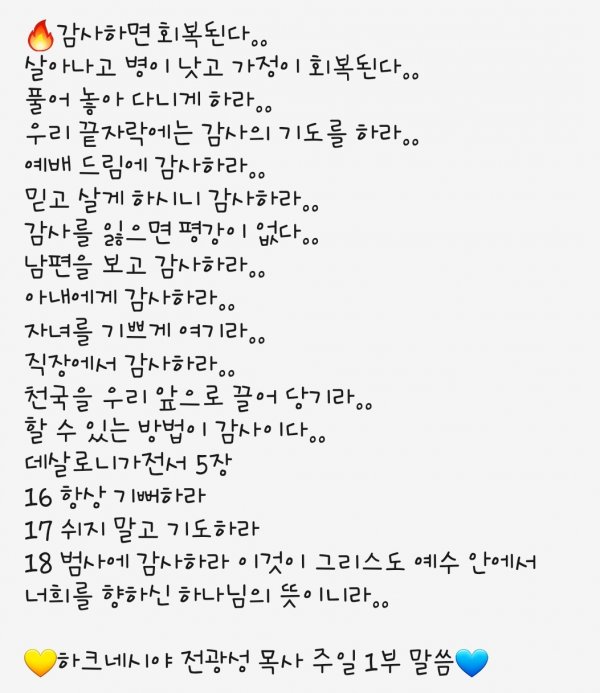 🔥감사하면 회복된다。。
살아나고 병이 낫고 가정이 회복된다。。
풀어 놓아 다니게 하라。。
우리 끝자락에는 감사의 기도를 하라。。
예배 드림에 감사하라。。
믿고 살게 하시니 감사하라。。
감사를 잃으면 평강이 없다。。
남편을 보고 감사하라。。
아내에게 감사하라。。
자녀를 기쁘게 여기라。。
직장에서 감사하라。。
천국을 우리 앞으로 끌어 당기라。。
할 수 있는 방법이 감사이다。。
데살로니가전서 5장
16 항상 기뻐하라
17 쉬지 말고 기도하라
18 범사에 감사하라 이것이 그리스도 예수 안에서
너희를 향하신 하나님의 뜻이니라。。
💛하크네시야 전광성 목사 주일 1부 말씀💙